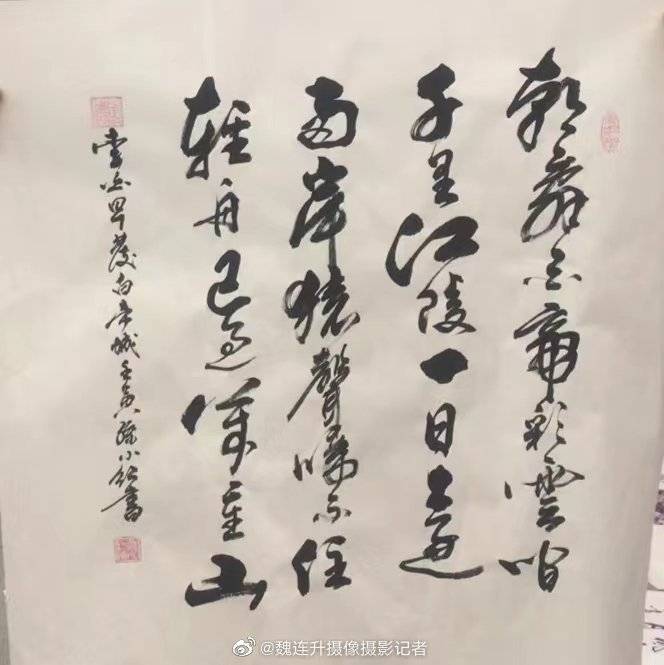 朝辞白帝彩雲间
千里江陵一日還
两岸猿聲啼不住
轻舟已过萬重山
李白早发白帝城壬寅 小 书
@魏连升摄像摄影记者